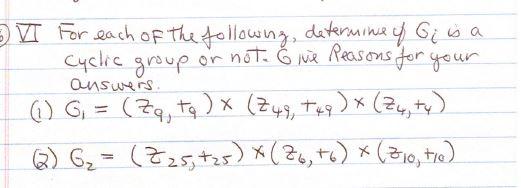 VI For each of the following, determine if Gᵢ is a
cyclic group or not. Give Reasons for your
answers.
(1) G₁ = (Z₉, +₉) × (Z₄₉, +₄₉) × (Z₄, +₄)
(2) G₂ = (Z₂₅, +₂₅) × (Z₆, +₆) × (Z₁₀, +₁₀)